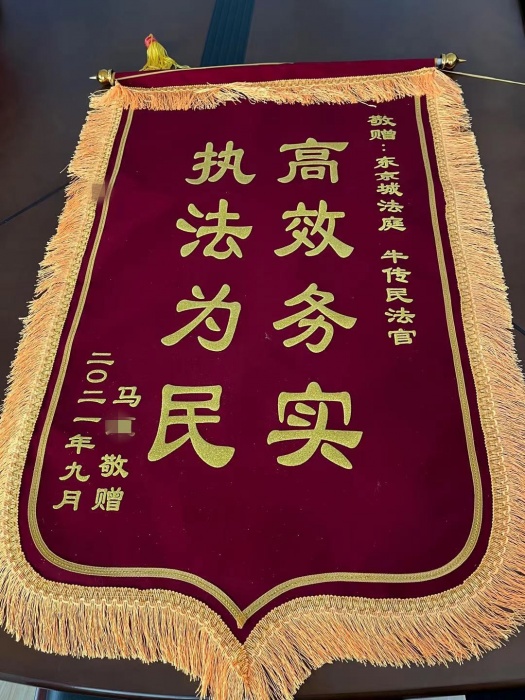 敬赠：东京城法庭 牛传民法官
高效务实
执法为民
马 敬赠
二〇二一年九月